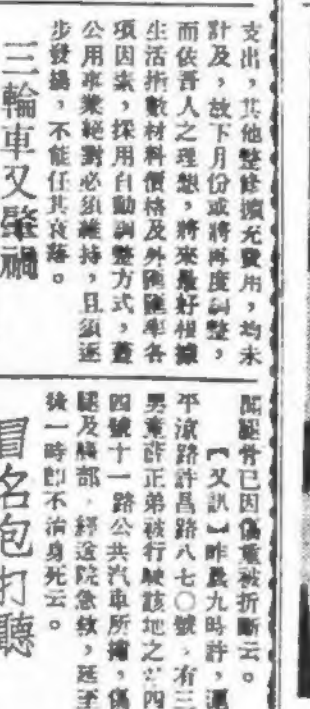 支出，其他整修擴充費用，均未
計及，故下月份或將再度調整，
而依吾人之理想，將來最好根據
生活指數材料價格及外匯匯率各
項因素，採用自動調整方式，蓋
公用事業絕對必須維持，且須逐
步發揚，不能任其衰落。
三輪車又肇禍
間腿骨已因傷重被折斷云。
【又訊】昨晨九時許，滬
平涼路許昌路八七〇號，有三
男童薛正弟被行駛該地之四
四號十一路公共汽車所撞，傷
腿及胸部，經送院急救，延至
後一時即不治身死云。
冒名包打聽